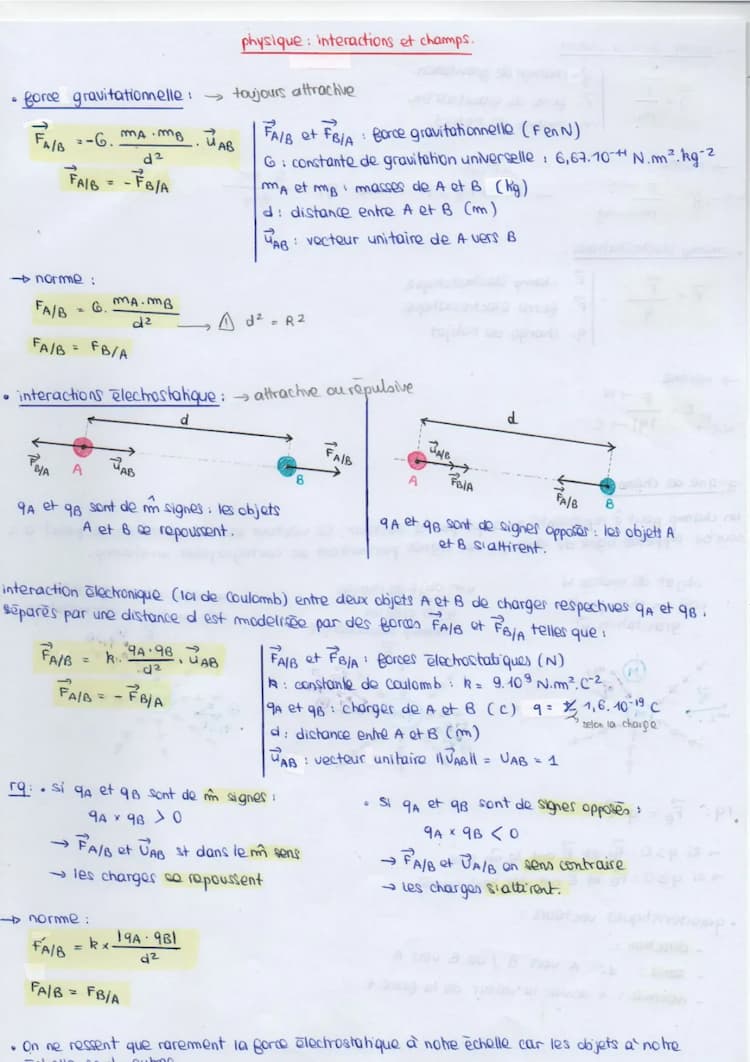 physique : interactions et champs.
• force gravitationnelle : → toujours attractive
F⃗A/B = -G. mA.mB/d² . u⃗AB
F⃗A/B = - F⃗B/A
F⃗A/B et F⃗B/A : force gravitationnelle (F en N)
G : constante de gravitation universelle : 6,67.10⁻¹¹ N.m².kg⁻²
mA et mB : masses de A et B (kg)
d : distance entre A et B (m)
u⃗AB : vecteur unitaire de A vers B
→ norme :
FA/B = G. mA.mB/d² → ⚠ d² = R²
FA/B = FB/A
• interactions électrostatique : → attractive ou répulsive
d
F⃗B/A A u⃗AB B F⃗A/B
qA et qB sont de m̂ signes : les objets
A et B se repoussent.
d
A u⃗A/B F⃗B/A F⃗A/B B
qA et qB sont de signes opposés : les objets A
et B s'attirent.
interaction électronique (loi de Coulomb) entre deux objets A et B de charges respectives qA et qB,
séparés par une distance d est modelisée par des forces F⃗A/B et F⃗B/A telles que :
F⃗A/B = k. qA.qB/d² . u⃗AB
F⃗A/B = - F⃗B/A
F⃗A/B et F⃗B/A : forces électrostatiques (N)
k : constante de Coulomb : k = 9.10⁹ N.m².C⁻²
qA et qB : charges de A et B (C) q = +/- 1,6.10⁻¹⁹ C
selon la charge
d : distance entre A et B (m)
u⃗AB : vecteur unitaire ||u⃗AB|| = UAB = 1
rq : • si qA et qB sont de m̂ signes :
qA × qB > 0
→ F⃗A/B et U⃗AB st dans le m̂ sens
→ les charges se repoussent
• si qA et qB sont de signes opposés :
qA × qB < 0
→ F⃗A/B et U⃗A/B en sens contraire
→ les charges s'attirent.
→ norme :
FA/B = k × |qA.qB|/d²
FA/B = FB/A
• On ne ressent que rarement la force électrostatique à notre échelle car les objets à notre